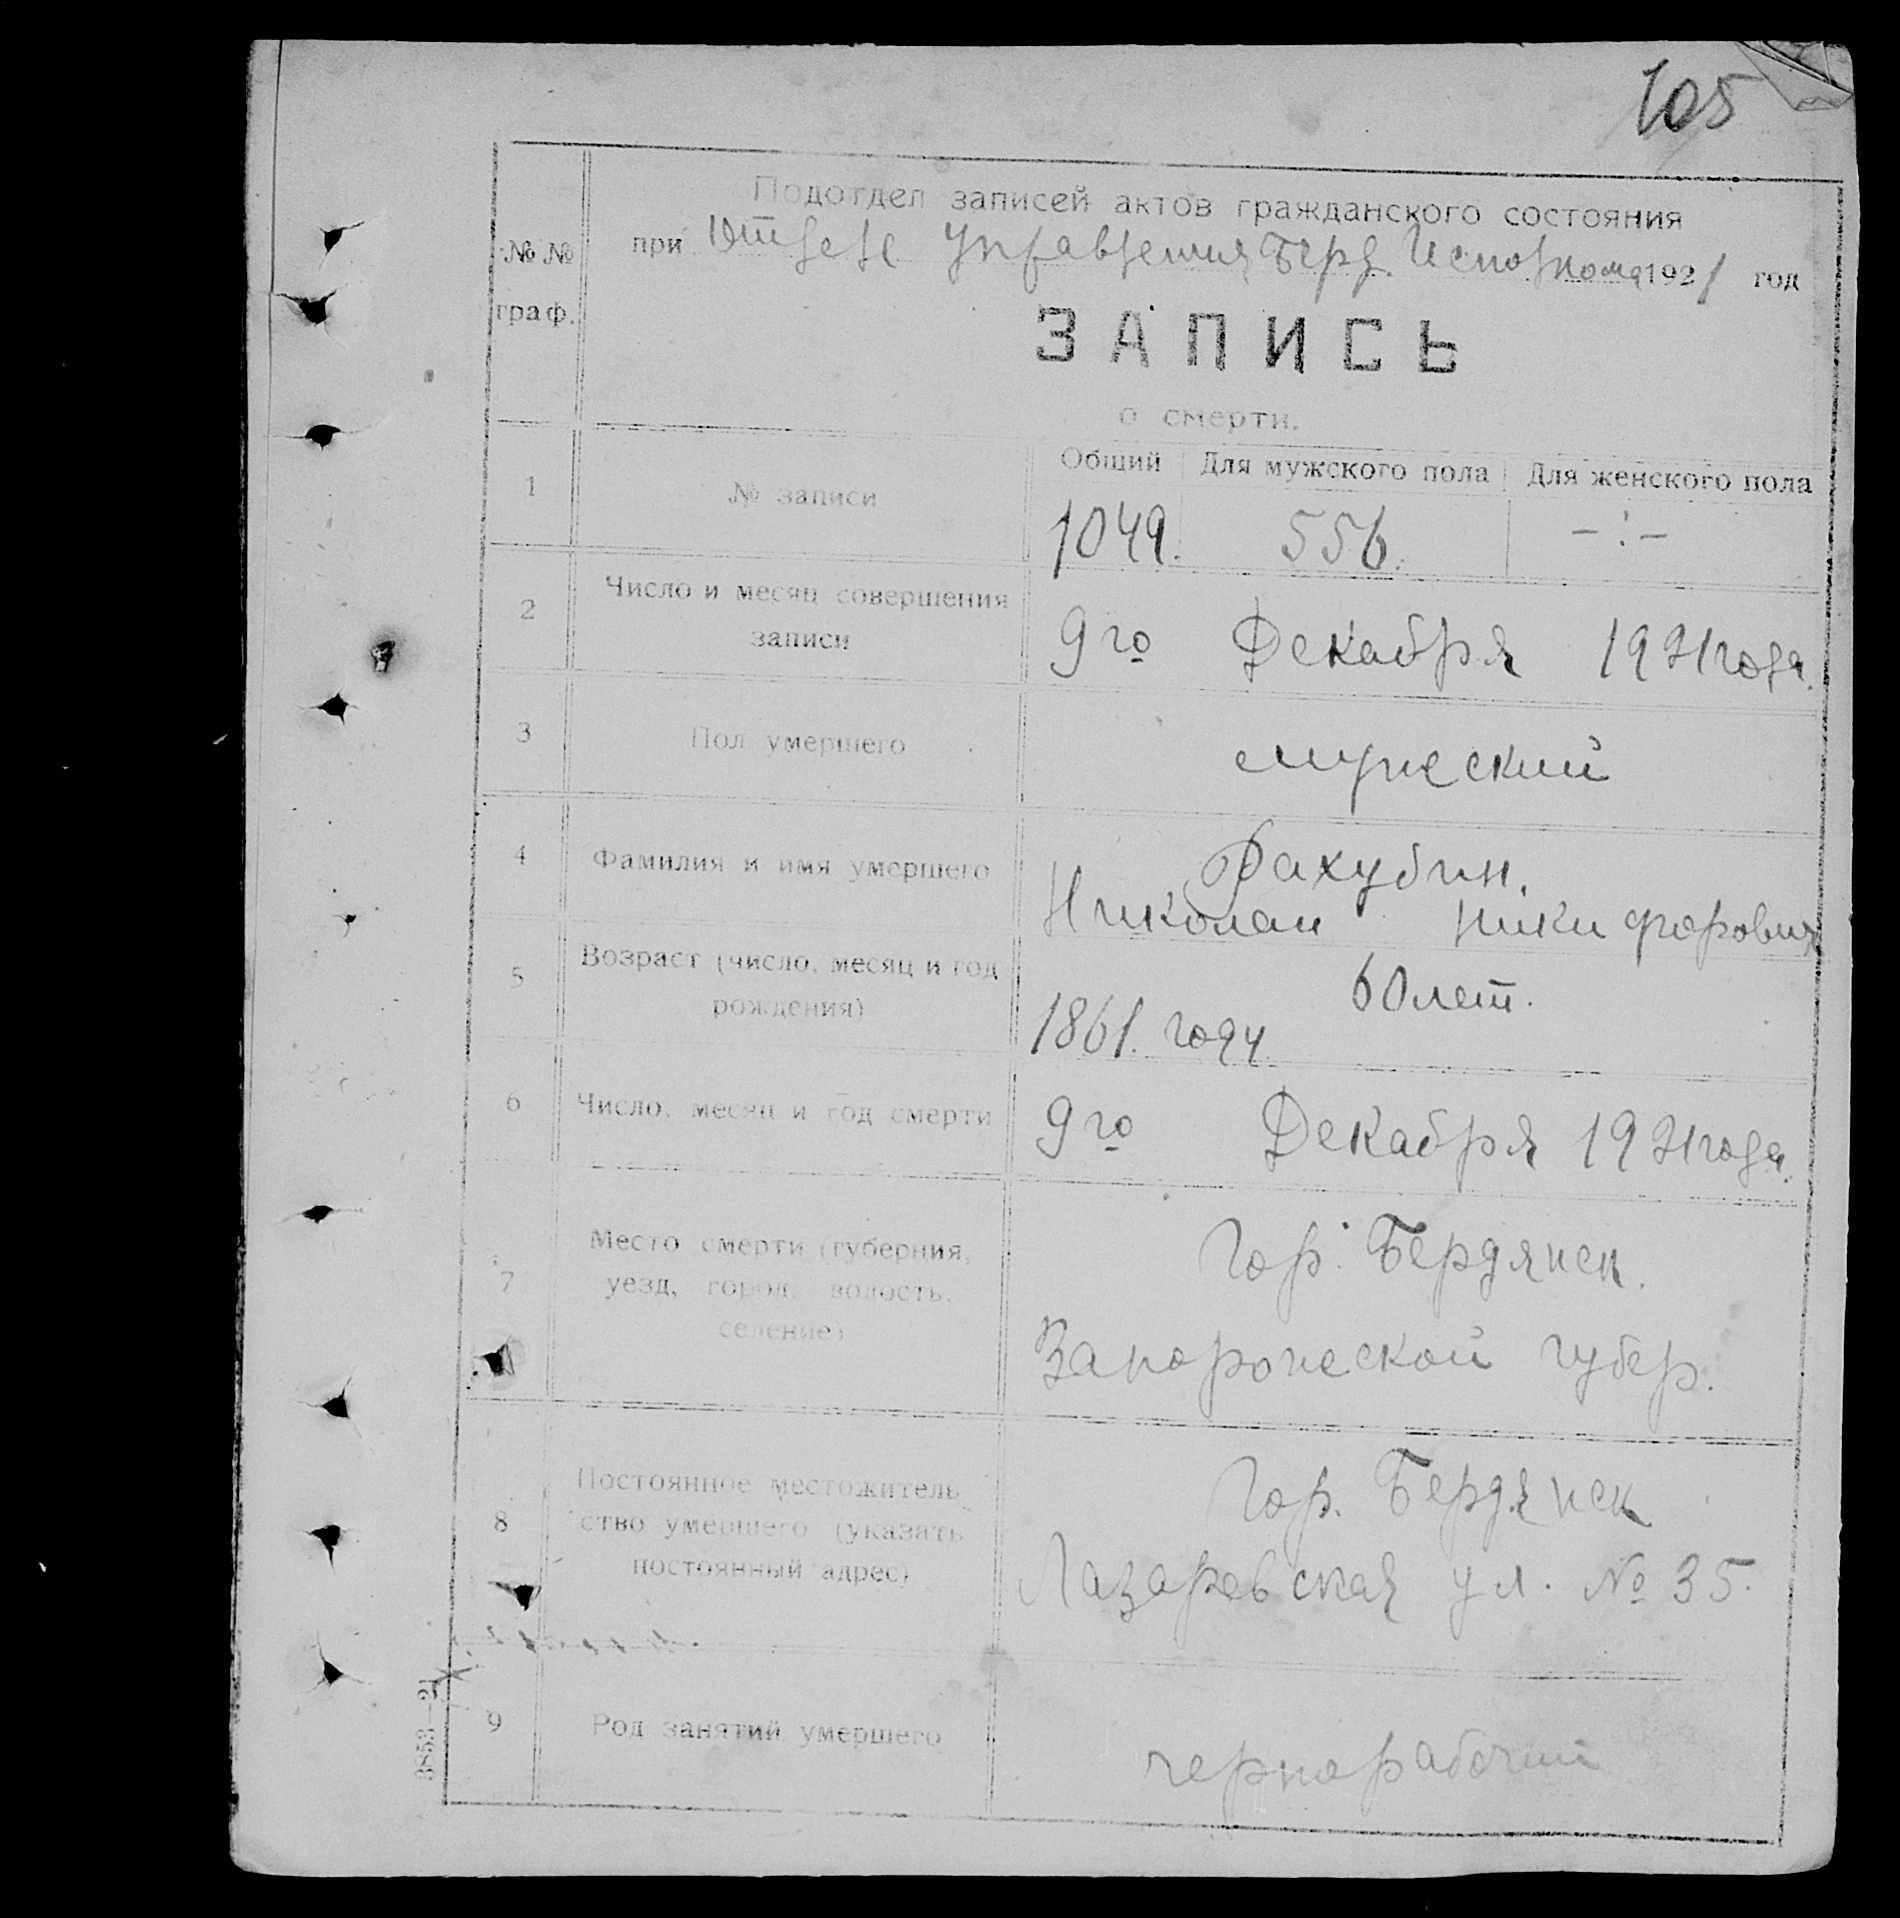 105
Подотдел записей актов гражданского состояния
при Отделе Управления Берд. Исполкома 1921 год
№ № граф.
ЗАПИСЬ
о смерти.
Общий Для мужского пола Для женского пола
1 № записи 1049. 556. -:-
2 Число и месяц совершения
записи 9го Декабря 1921 года.
3 Пол умершего мужеский
4 Фамилия и имя умершего Рахубин.
Николаи Никифорович
5 Возраст (число, месяц и год
рождения) 60 лет.
1861. году
6 Число, месяц и год смерти 9го Декабря 1921 года.
7 Место смерти (губерния,
уезд, город, волость,
селение) Гор. Бердянск.
Запорожеской губер.
8 Постоянное местожитель
ство умершего (указать
постоянный адрес) Гор. Бердянск
Лазаревская ул. № 35.
9 Род занятий умершего чернорабочий
3853—21